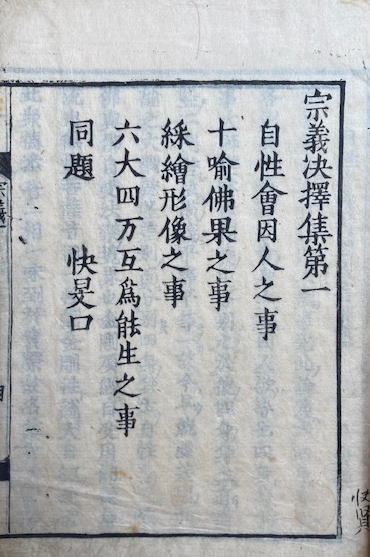 宗義決擇集第一
自性會因人之事
十喻佛果之事
綵繪形像之事
六大四万互爲能生之事
同題 快旻口
宗義
目